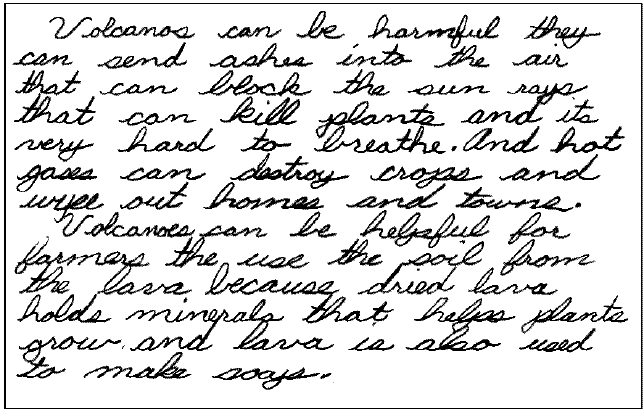 Volcanos can be harmful they
can send ashes into the air
that can block the sun rays
that can kill plants and its
very hard to breathe. And hot
gases can destroy crops and
wipe out homes and towns.
Volcanoes can be helpful for
farmers the use the soil from
the lava because dried lava
holds minerals that helps plants
grow. and lava is also used
to make soaps.